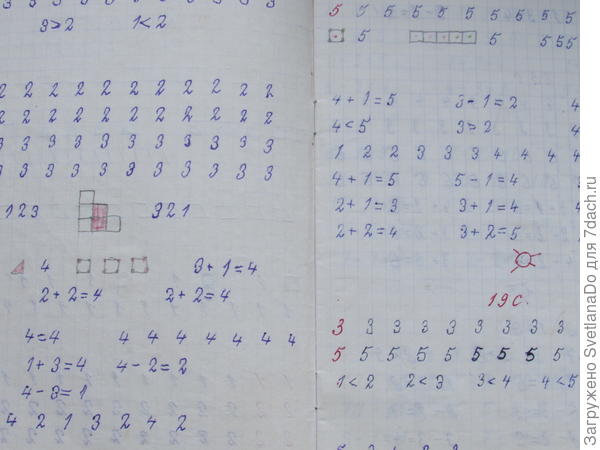 3>2 1<2
2 2 2 2 2 2 2 2 2 2 2
2 2 2 2 2 2 2 2 2 2 2
3 3 3 3 3 3 3 3 3 3 3
3 3 3 3 3 3 3 3 3 3 3
1 2 3 3 2 1
4 3+1=4
2+2=4 2+2=4
4=4 4 4 4 4 4 4 4
1+3=4 4-2=2
4-3=1
4 2 1 3 2 4 2
5 5 5 5 5 5 5 5 5 5
5 5 5 5 5
4+1=5 3-1=2 4
4<5 3>2 4
1 2 2 3 3 3 4 4 4 4
4+1=5 5-1=4
2+1=3 3+1=4
2+2=4 3+2=5
19 С.
3 3 3 3 3 3 3 3 3
5 5 5 5 5 5 5 5 5
1<2 2<3 3<4 4<5
Загружено SvetlanaDo для 7dach.ru